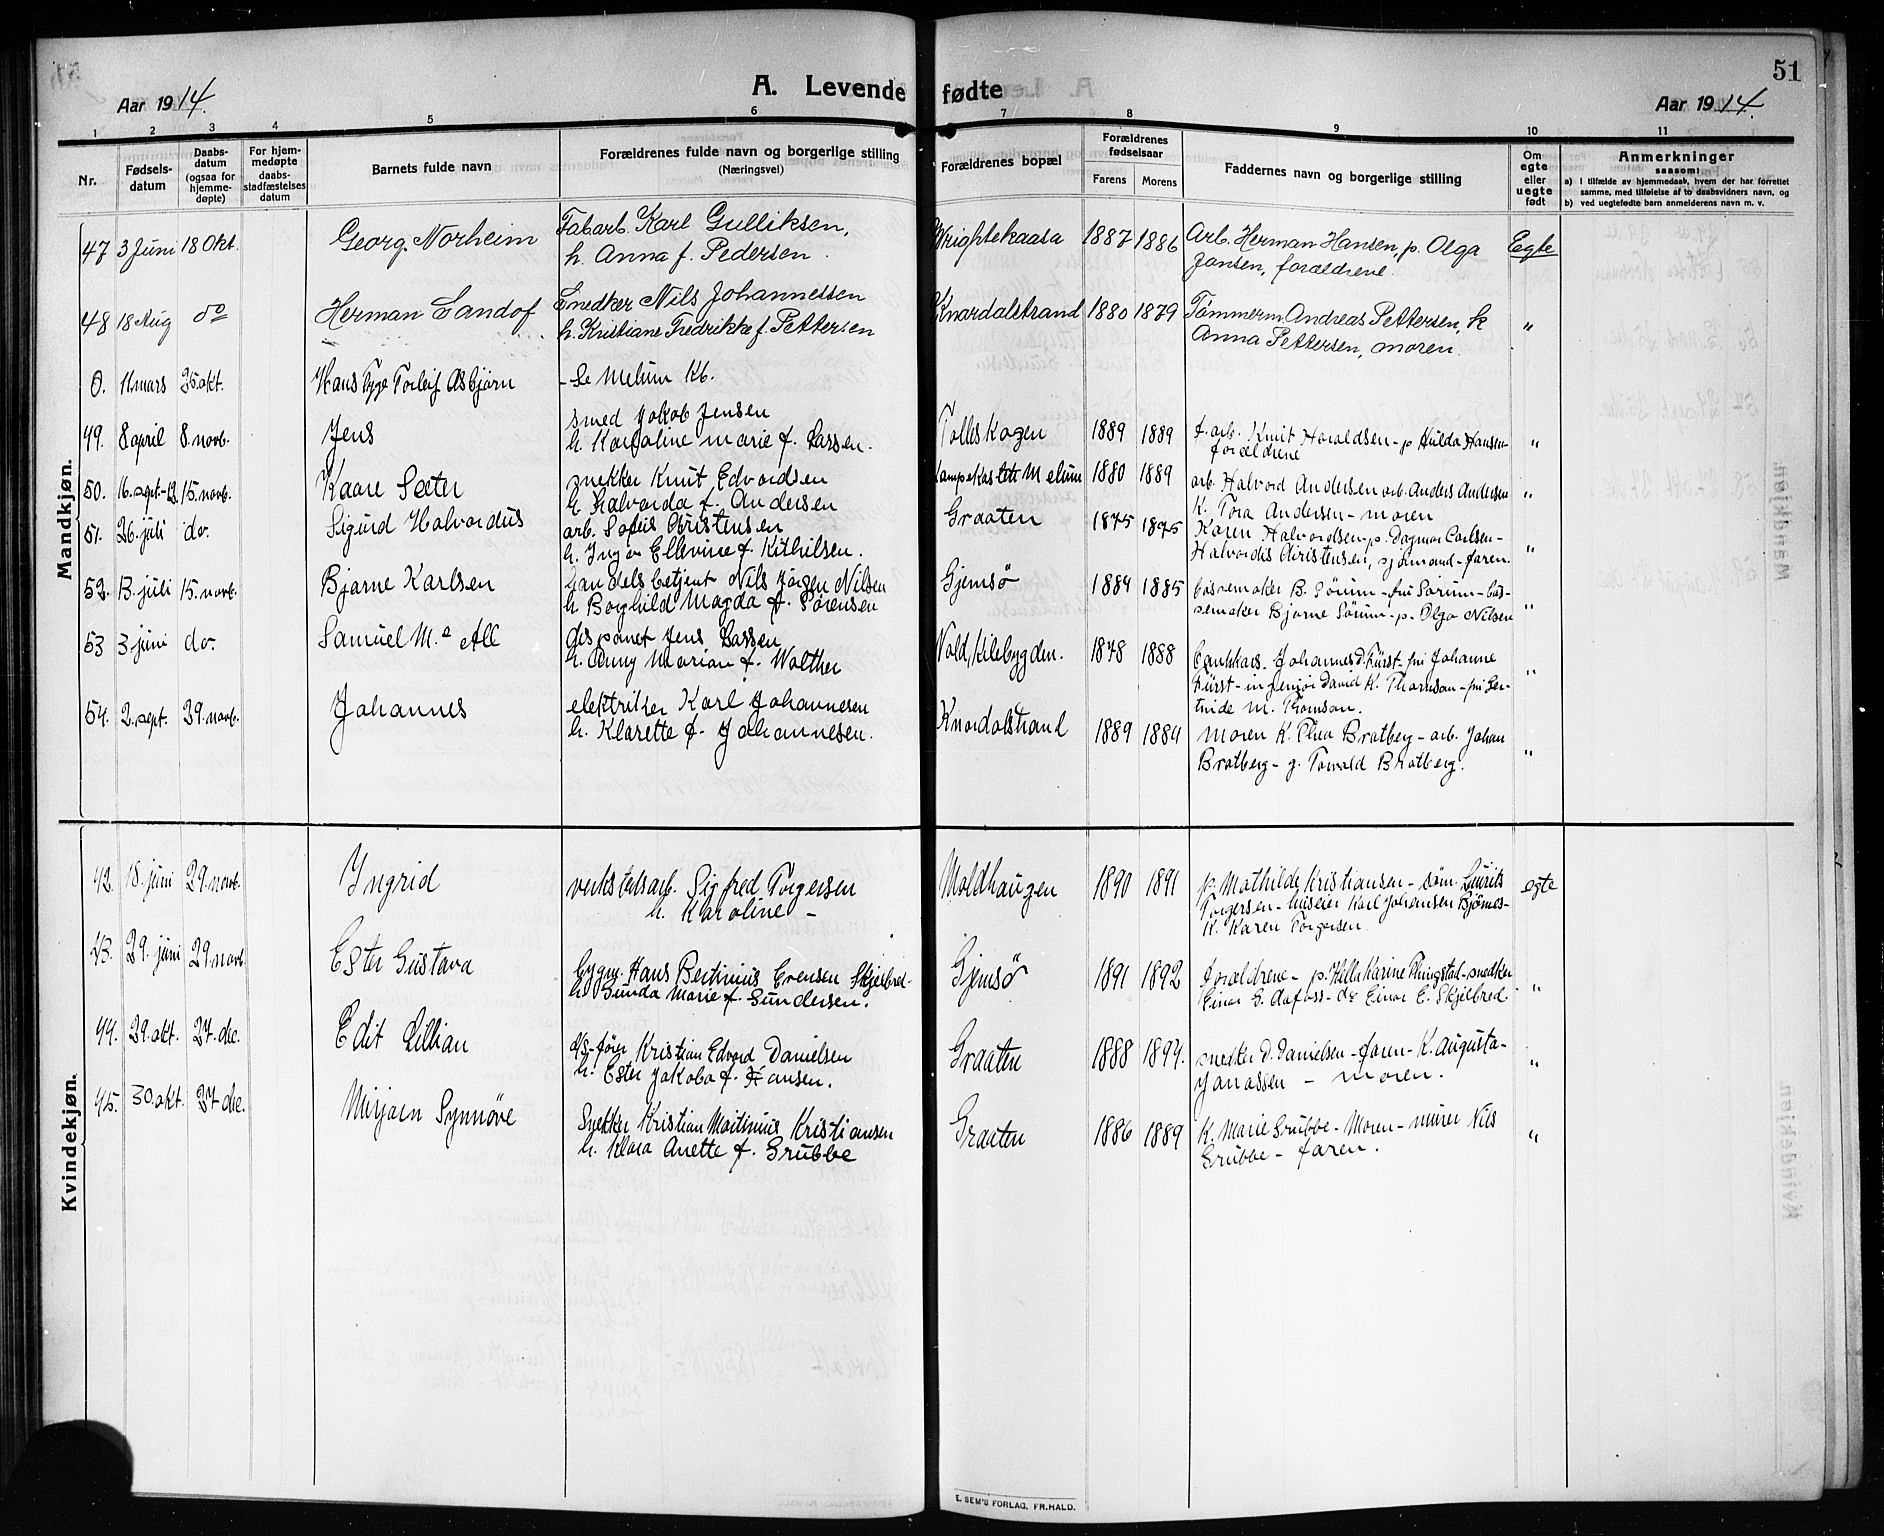 51
Aar 1914.
A. Levende fødte
Aar 1914.
1 2 3 4 5 6 7 8 9 10 11
Nr.
Fødselsdatum
Daabsdatum (ogsaa for hjemmedøpte)
For hjemmedøpte daabsstadfæstelses datum
Barnets fulde navn
Forældrenes fulde navn og borgerlige stilling
(Næringsvei)
Forældrenes bopæl
Forældrenes fødselsaar
Farens Morens
Faddernes navn og borgerlige stilling
Om egte eller uegte født
Anmerkninger
saasom:
a) I tilfælde av hjemmedaab, hvem der har forrettet samme, med tilføielse af to daabsvidners navn, og
b) ved uegtefødte barn anmelderens navn m. v.
Mandkjøn.
47 3 Juni 18 Okt. Georg Norheim Fabarb. Karl Gulliksen, Wrightekaasa 1887 1886 Arb. Herman Hansen, p. Olga Egte
h. Anna f. Pedersen. Jansen, forældrene.
48 18 Aug do Herman Sandof Snedker Nils Johannessen Knardalstrand 1880 1879 Tømmerm. Andreas Pettersen, k "
h. Kristiane Fredrikke f. Pettersen Anna Pettersen, moren.
0. 11 mars 25. okt. Hans Tyge Torleif Asbjørn - Se Melum Kb.
49. 8 april 8. novb. Jens smed Jakob Jensen Tolleskogen 1889 1889 f. arb. Knut Haraldsen - p Hulda Hansen "
h. Karoline marie f. Larsen. forældrene
50. 16. sept. -13 15. novb. Kaare Sæter snekker Knut Edvardsen Melum 1880 1889 arb. Halvord Andersen arb. Anders Andersen "
h Halvarda f. Andersen K. Tora Andersen - moren
51. 26. juli do. Sigurd Halvordus arb. Christensen Graaten 1875 1875 Karen Halvordsen - p. Dagmar Carlsen -
h. Inger Ellevine f. Kittilsen. Halvordis Christensen, sjømand - faren. "
52. 13. juli 15. novb. Bjarne Karlsen handelsbetjent Nils Jørgen Nilsen Gjemsø 1884 1885 bøssemaker B. Sørum - fru Sørum - bøs-
h. Borghild Magda f. Sørensen semaker Bjarne Sørum - p. Olga Nilsen "
53 3 juni do. Samuel Mc All disponet Jens Lassen Vold, Kilebygden. 1878 1888 bankkas. Johannes D. Fürst - fru Johanne
h. Anny Marian f. Walther Fürst - ingeniør David K. Thomson - fru Ger- "
trude M. Thomson.
54. 2. sept. 29. novb. Johannes elektriker Karl Johannesen Knardalstrand 1889 1884 moren K. Thea Bratberg - arb. Johan
h. Klarette f. Johannesen. Bratberg - g. Torvald Bratberg. "
Kvindekjøn.
42. 18. juni 29. novb. Ingrid verkstedsarb. Sigfred Torgersen Moldhaugen 1890 1891 p. Mathilde Kristiansen - søm. egte
h. Karoline - Torgersen - huseier Karl Johansen Bjørnes -
K. Karen Torgersen
43. 29. juni 29. novb. Ester Gustava bygm. Hans Bertinius Evensen Skjelbred - Gjemsø 1891 1892 forældrene - p. Karine - snedker
h. Gunda Marie f. Gundersen. Einar G. Aafoss - do Einar E. Skjelbred "
44. 29. okt. 27. dec. Edit Lillian Kristian Edvard Danielsen Graaten 1888 1894. snedker D. Danielsen - faren - K. Augusta
h. Ester Jakoba f. Hansen. Jonassen - moren. "
45. 30. okt. 27 dec. Mirjam Synnøve Snekker Kristian Martinius Kristiansen Graaten 1886 1889 K. Marie Grubbe - Moren - murer Nils
h. Klara Anette f. Grubbe Grubbe - faren. "
E. SEM'S FORLAG. FR.HALD.